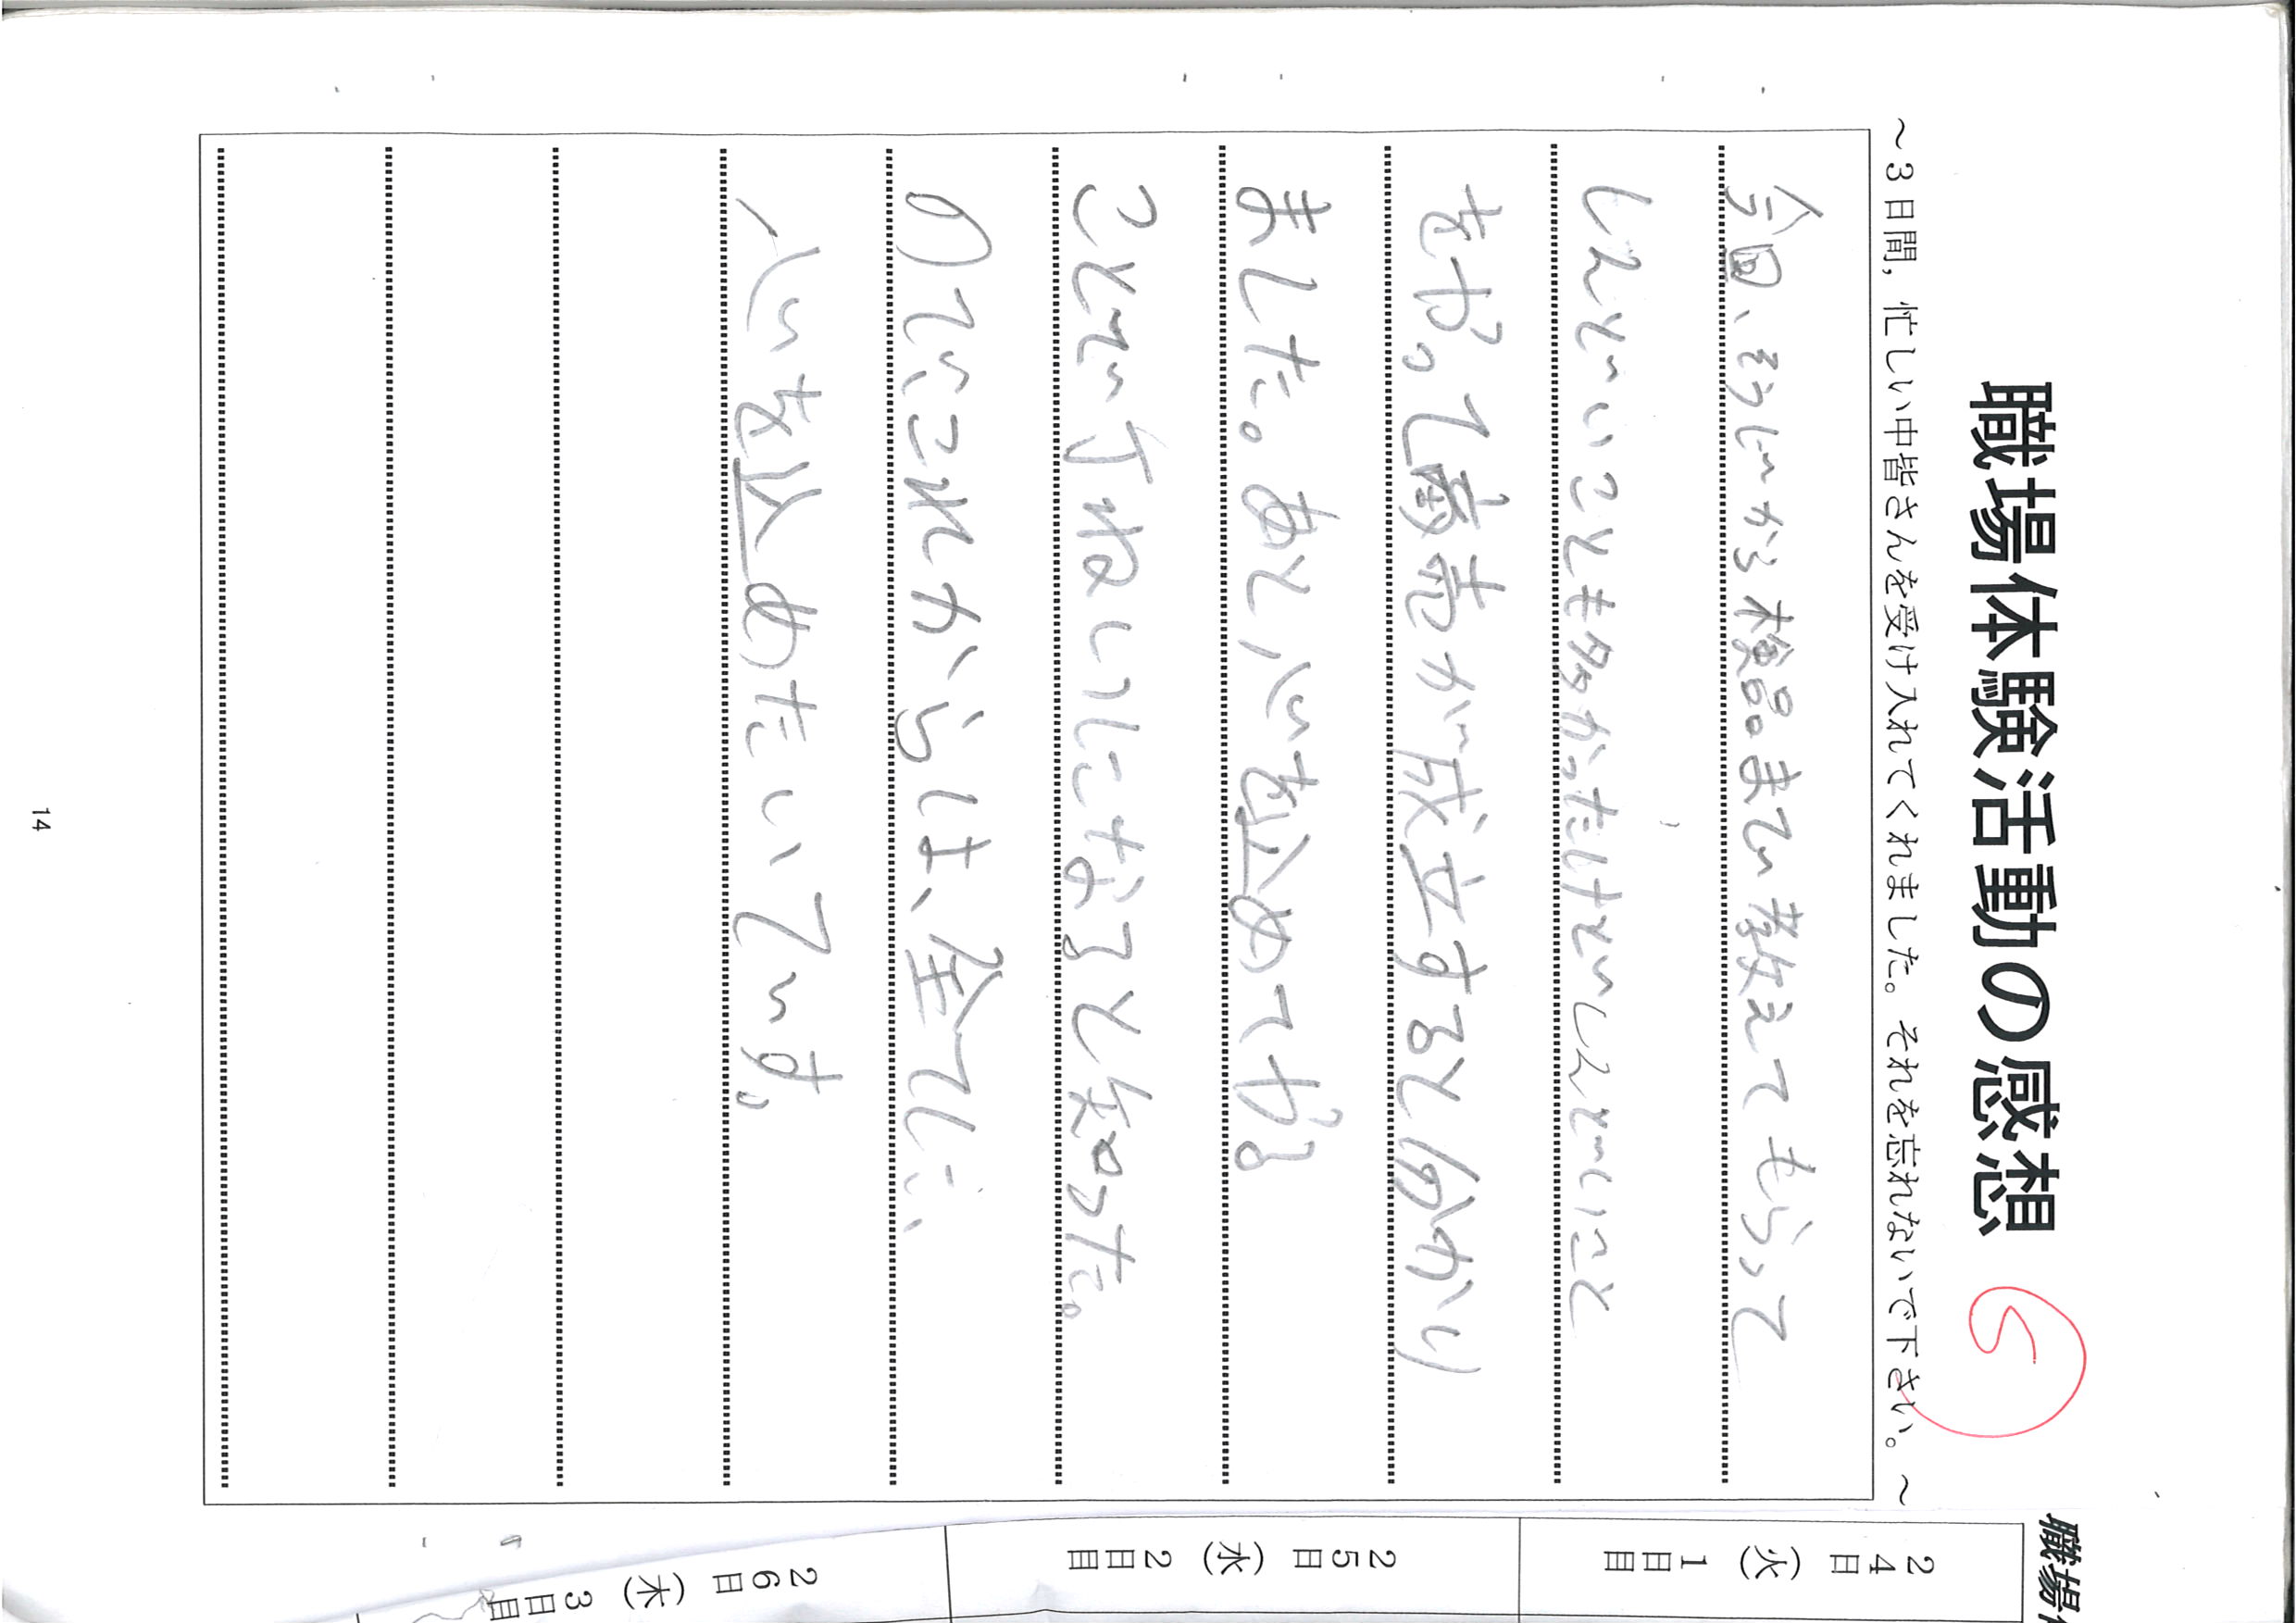 職場体験活動の感想
～3日間，忙しい中皆さんを受け入れてくれました。それを忘れないで下さい。～
今回、そうじから検品まで教えてもらって
しんどいことも多かったけどしんどいこと
をやって商売が成立すると分かり
ました。あと心を込めてやる
ことで丁ねいになると知った。
のでこれからは、全てに、
心を込めたいです。
14
職場体
24日（火）1日目
25日（水）2日目
26日（木）3日目